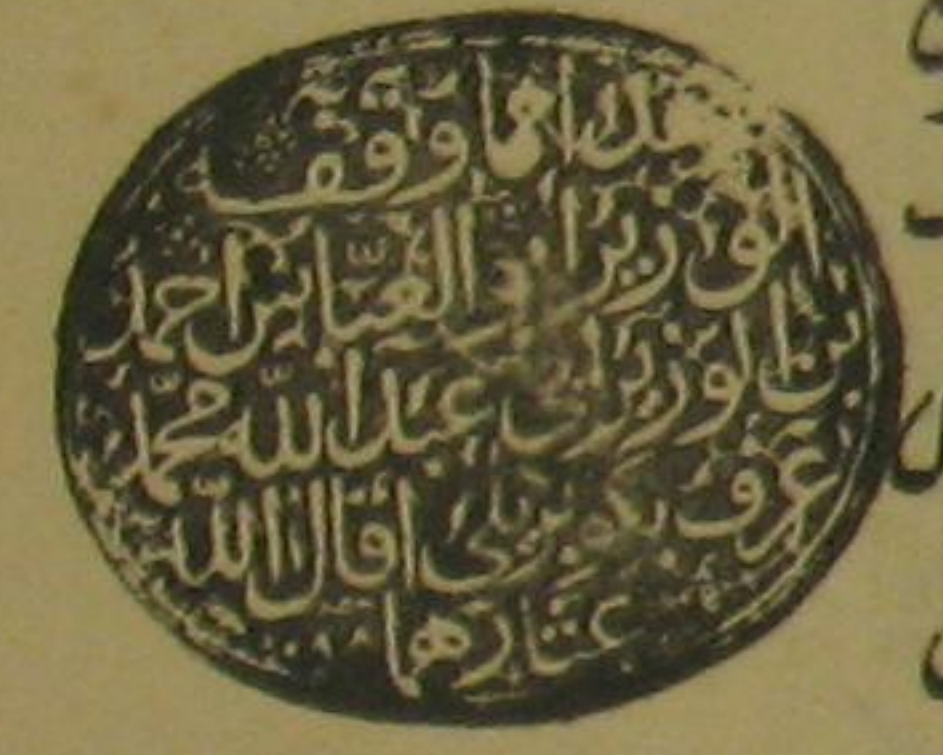 هذا مما وقف
الوزير ابو العبّاس احمد
بن الوزير ابى عبد الله محمّد
عرف بكوبريلى اقال الله
عثارهما